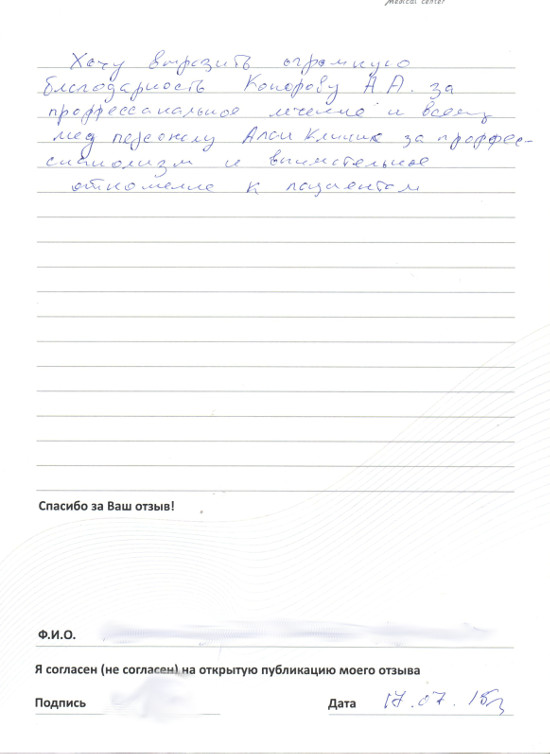 medical center
Хочу выразить огромную
благодарность Конорову А А. за
профессиональное лечение и всему
мед персоналу Алан Клиник за профес-
сионализм и внимательное
отношение к пациентам
Спасибо за Ваш отзыв!
Ф.И.О.
Я согласен (не согласен) на открытую публикацию моего отзыва
Подпись
Дата 17.07.15г